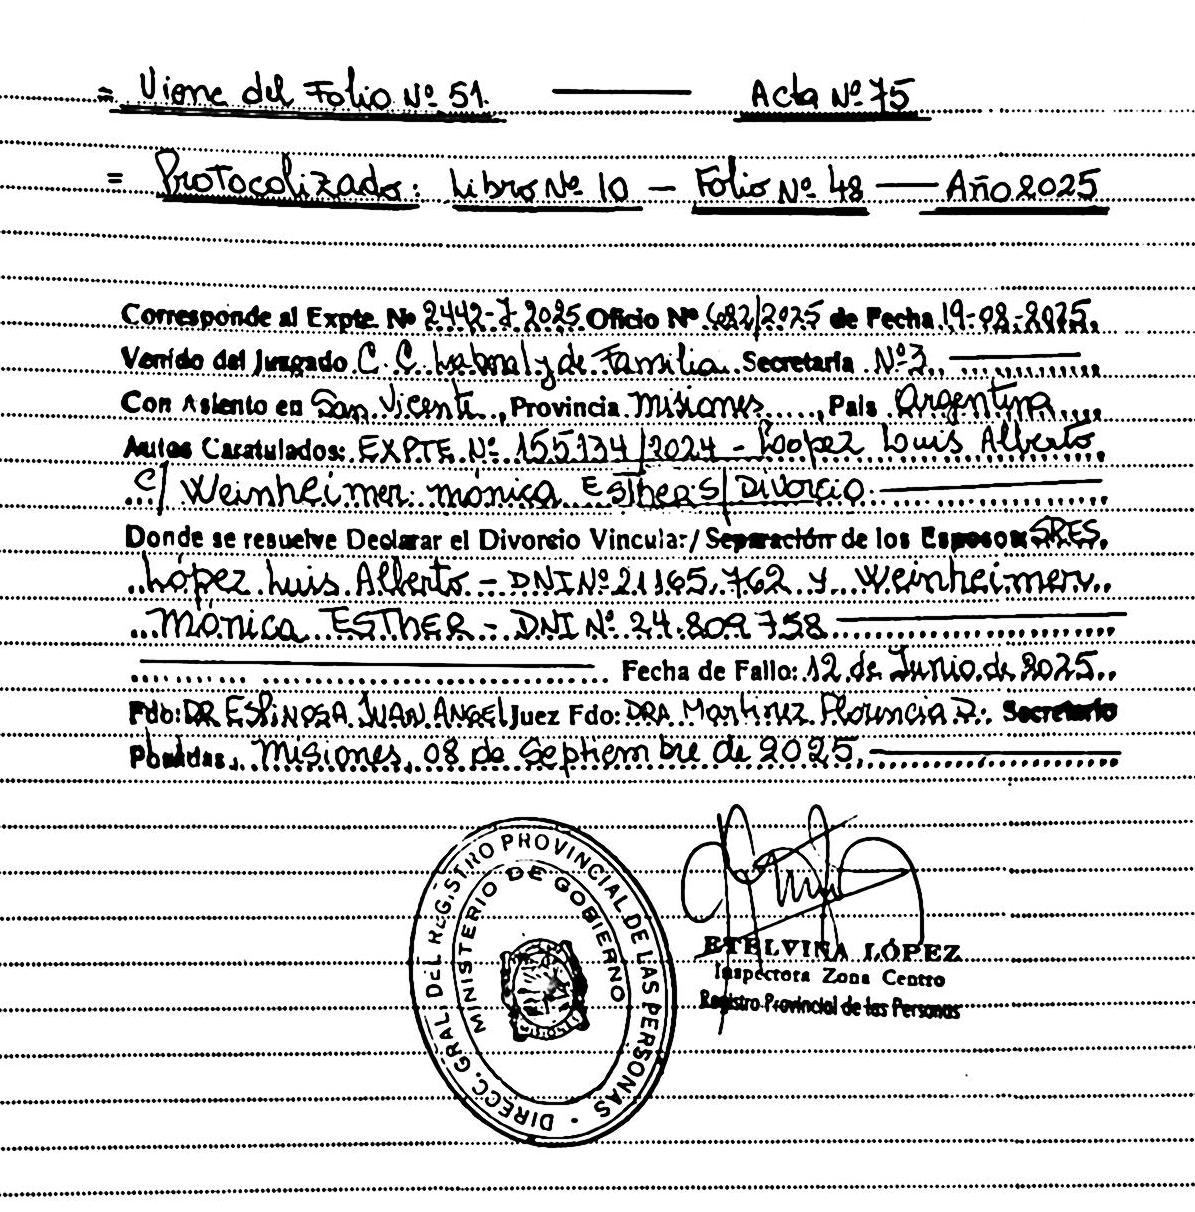 = Viene del Folio Nº 51. — Acta Nº 75
= Protocolizado: Libro Nº 10 — Folio Nº 48 — Año 2025
Corresponde al Expte Nº 2442-7-2025 Oficio Nº 682/2025 de Fecha 19-08-2025.
Venido del Juzgado C. C. Laboral y de Familia. Secretaría Nº 3.
Con Asiento en San Vicente, Provincia Misiones, País Argentina
Autos Caratulados: EXPTE. Nº 155134/2024 - Loopez Luis Alberto
C/ Weinheimer mónica Esther S/ Divorcio.
Donde se resuelve Declarar el Divorcio Vincular/ Separación de los Esposos SRES.
López Luis Alberto - DNI Nº 21.165.762 y Weinheimer
Mónica ESTHER - DNI Nº 24.809.758
Fecha de Fallo: 12 de Junio de 2025
Fdo: DR ESPINOSA JUAN ANGEL Juez Fdo: DRA Martinez Florencia D. Secretario
Posadas, Misiones, 08 de Septiembre de 2025.
DIRECC. GRAL. DEL REGISTRO PROVINCIAL DE LAS PERSONAS
MINISTERIO DE GOBIERNO
ETELVINA LÓPEZ
Inspectora Zona Centro
Registro Provincial de las Personas